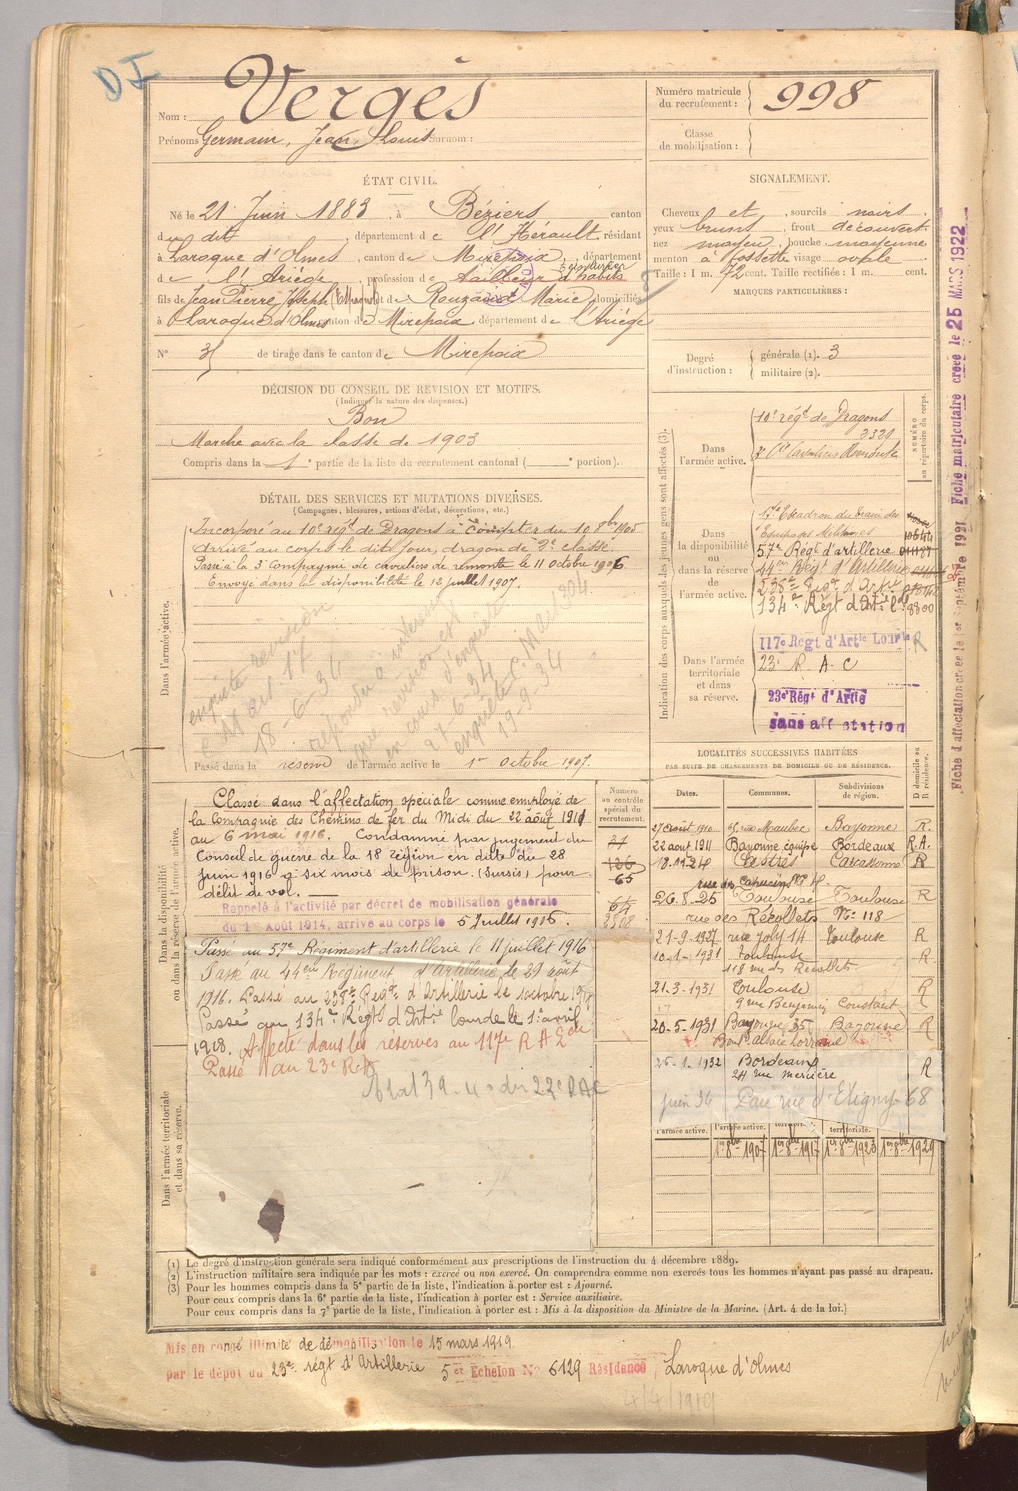 Nom : Vergès
Prénoms Germain, Jean, Louis Surnom :
Numéro matricule du recrutement : 998
Classe de mobilisation :
ÉTAT CIVIL.
Né le 21 Juin 1883, à Béziers canton
du dit, département de l'Hérault, résidant
à Laroque d'Olmes, canton de Mirepoix, département
de l'Ariège, profession de tailleur d'habits
fils de Jean Pierre Joseph (Espagnol) et de Rouzaud Marie, domiciliés
à Laroque d'Olmes canton de Mirepoix, département de l'Ariège
N° 35 de tirage dans le canton de Mirepoix
SIGNALEMENT.
Cheveux et, sourcils noirs
yeux bruns, front découvert
nez moyen, bouche moyenne
menton à fossette visage ovale
Taille : 1 m. 72 cent. Taille rectifiée : 1 m. cent.
MARQUES PARTICULIÈRES :
Degré d'instruction : générale (1). 3
militaire (2).
DÉCISION DU CONSEIL DE REVISION ET MOTIFS.
(Indiquer la nature des dispenses.)
Bon
Marche avec la classe de 1903
Compris dans la 1e partie de la liste du recrutement cantonal ( e portion).
DÉTAIL DES SERVICES ET MUTATIONS DIVERSES.
(Campagnes, blessures, actions d'éclat, décorations, etc.)
Dans l'armée active.
Incorporé au 10e régt de Dragons à compter du 10 8bre 1905
arrivé au corps le dit jour, dragon de 2e classe.
Passé à la 3e Compagnie de cavaliers de remonte le 11 octobre 1906
Envoyé dans la disponibilité le 12 juillet 1907.
18-6-34
27-6-34
19-9-34
Passé dans la réserve de l'armée active le 1er Octobre 1907.
Dans la disponibilité ou dans la réserve de l'armée active.
Classé dans l'affectation spéciale comme employé de
la Compagnie des Chemins de fer du Midi du 22 août 1911
au 6 mai 1916. Condamné par jugement du
Conseil de guerre de la 18e région en date du 28
juin 1916 à six mois de prison. (Sursis) pour
délit de vol.
Rappelé à l'activité par décret de mobilisation générale
du 1er Août 1914, arrivé au corps le 5 Juillet 1916.
Passé au 57e Régiment d'artillerie le 11 juillet 1916
Passé au 44eme Régiment d'Artillerie le 29 août
1916. Passé au 238e Régt d'Artillerie le 1 octobre 1917
Passé au 134e Régt d'Artie lourde le 1er avril
1918. Affecté dans les réserves au 117e R A L
Passé au 23e R.A
Dans l'armée territoriale et dans sa réserve.
Indication des corps auxquels les jeunes gens sont affectés (3).
NUMÉRO au répertoire du corps.
Dans l'armée active.
10e régt de Dragons
3321
3e Cie Cavaliers Remonte
Dans la disponibilité ou dans la réserve de l'armée active.
Escadron du Train des
Equipages Militaires
57e Régt d'artillerie
44eme Régt d'Artillerie
238e Régt d'Artie
134e Régt d'Artie Lde 8800
Dans l'armée territoriale et dans sa réserve.
117e Régt d'Artie Lourde R
23e R.A.C
23e Régt d'Artie
sans affectation
Numéro au contrôle spécial du recrutement.
21
126
65
LOCALITÉS SUCCESSIVES HABITÉES
PAR SUITE DE CHANGEMENTS DE DOMICILE OU DE RÉSIDENCE.
Dates. Communes. Subdivisions de région. D domicile ou R résidence.
27 août 1910 rue Maubec Bayonne R.
22 août 1911 Bayonne équipe Bordeaux R.A.
18.1.24 Castres Carcassonne R
rue des Capucins
26.8.25 Toulouse Toulouse R
rue des Récollets N° 118
21-9-1927 rue Joly 14 Toulouse R
10-1-1931 Toulouse R
118 rue des Récollets
21-3-1931 Toulouse R
9 rue Benjamin Constant
20-5-1931 Bayonne 35 Bayonne R
Bould alsace lorraine
25-1-1932 Bordeaux R
24 rue mercière
juin 34 Pau rue d'Etigny 68
l'armée active.
1er 8bre 1907 1er 8bre 1917 1er 8bre 1923 1er 8bre 1929
(1) Le degré d'instruction générale sera indiqué conformément aux prescriptions de l'instruction du 4 décembre 1889.
(2) L'instruction militaire sera indiquée par les mots : exercé ou non exercé. On comprendra comme non exercés tous les hommes n'ayant pas passé au drapeau.
(3) Pour les hommes compris dans la 5e partie de la liste, l'indication à porter est : Ajourné.
Pour ceux compris dans la 6e partie de la liste, l'indication à porter est : Service auxiliaire.
Pour ceux compris dans la 7e partie de la liste, l'indication à porter est : Mis à la disposition du Ministre de la Marine. (Art. 4 de la loi.)
Mis en congé illimité de démobilisation le 15 mars 1919
par le dépôt du 23e régt d'Artillerie 5e Echelon N° 6129 Résidence Laroque d'Olmes
4/4/1919
Fiche matriculaire créée le 25 MARS 1922